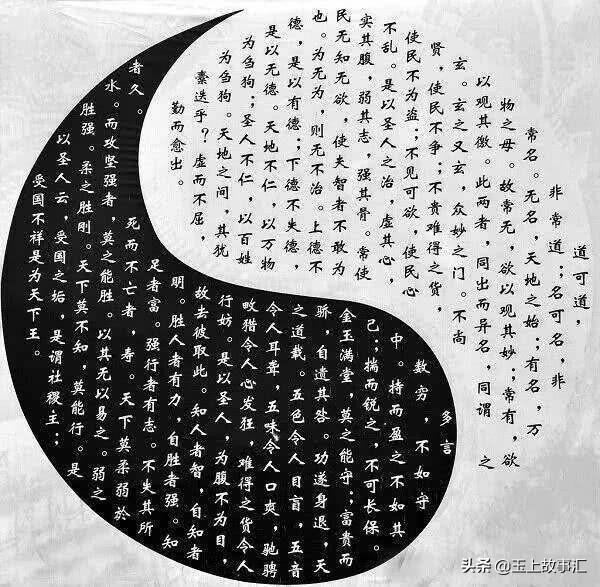 道可道，
非常道；名可名，非
常名。无名，天地之始；有名，万
物之母。故常无，欲以观其妙；常有，欲
以观其徼。此两者，同出而异名，同谓 之
玄。玄之又玄，众妙之门。不尚
贤，使民不争；不贵难得之货，
使民不为盗；不见可欲，使民心
不乱。是以圣人之治，虚其心，
实其腹，弱其志，强其骨。常使
民无知无欲，使夫智者不敢为
也。为无为，则无不治。上德不
德，是以有德；下德不失德，
是以无德。天地不仁，以万物
为刍狗；圣人不仁，以百姓
为刍狗。天地之间，其犹
乎？虚而不屈，
勤而愈出。
多言
数穷，不如守
中。持而盈之不如其
己；揣而锐之，不可长保。
金玉满堂，莫之能守；富贵而
骄，自遗其咎。功遂身退，天
之道哉。五色令人目盲，五音
令人耳聋，五味令人口爽，驰骋
畋猎令人心发狂，难得之货令人
行妨。是以圣人，为腹不为目，
故去彼取此。知人者智，自知者
明。胜人者有力，自胜者强。知
足者富。强行者有志。不失其所
者久。
死而不亡者，寿。天下莫柔弱於
水。而攻坚强者，莫之能胜。以其无以易之。弱之
胜强。柔之胜刚。天下莫不知，莫能行。是
以圣人云，受国之垢，是谓社稷主；
受国不祥是为天下王。
头条 @玉上故事汇